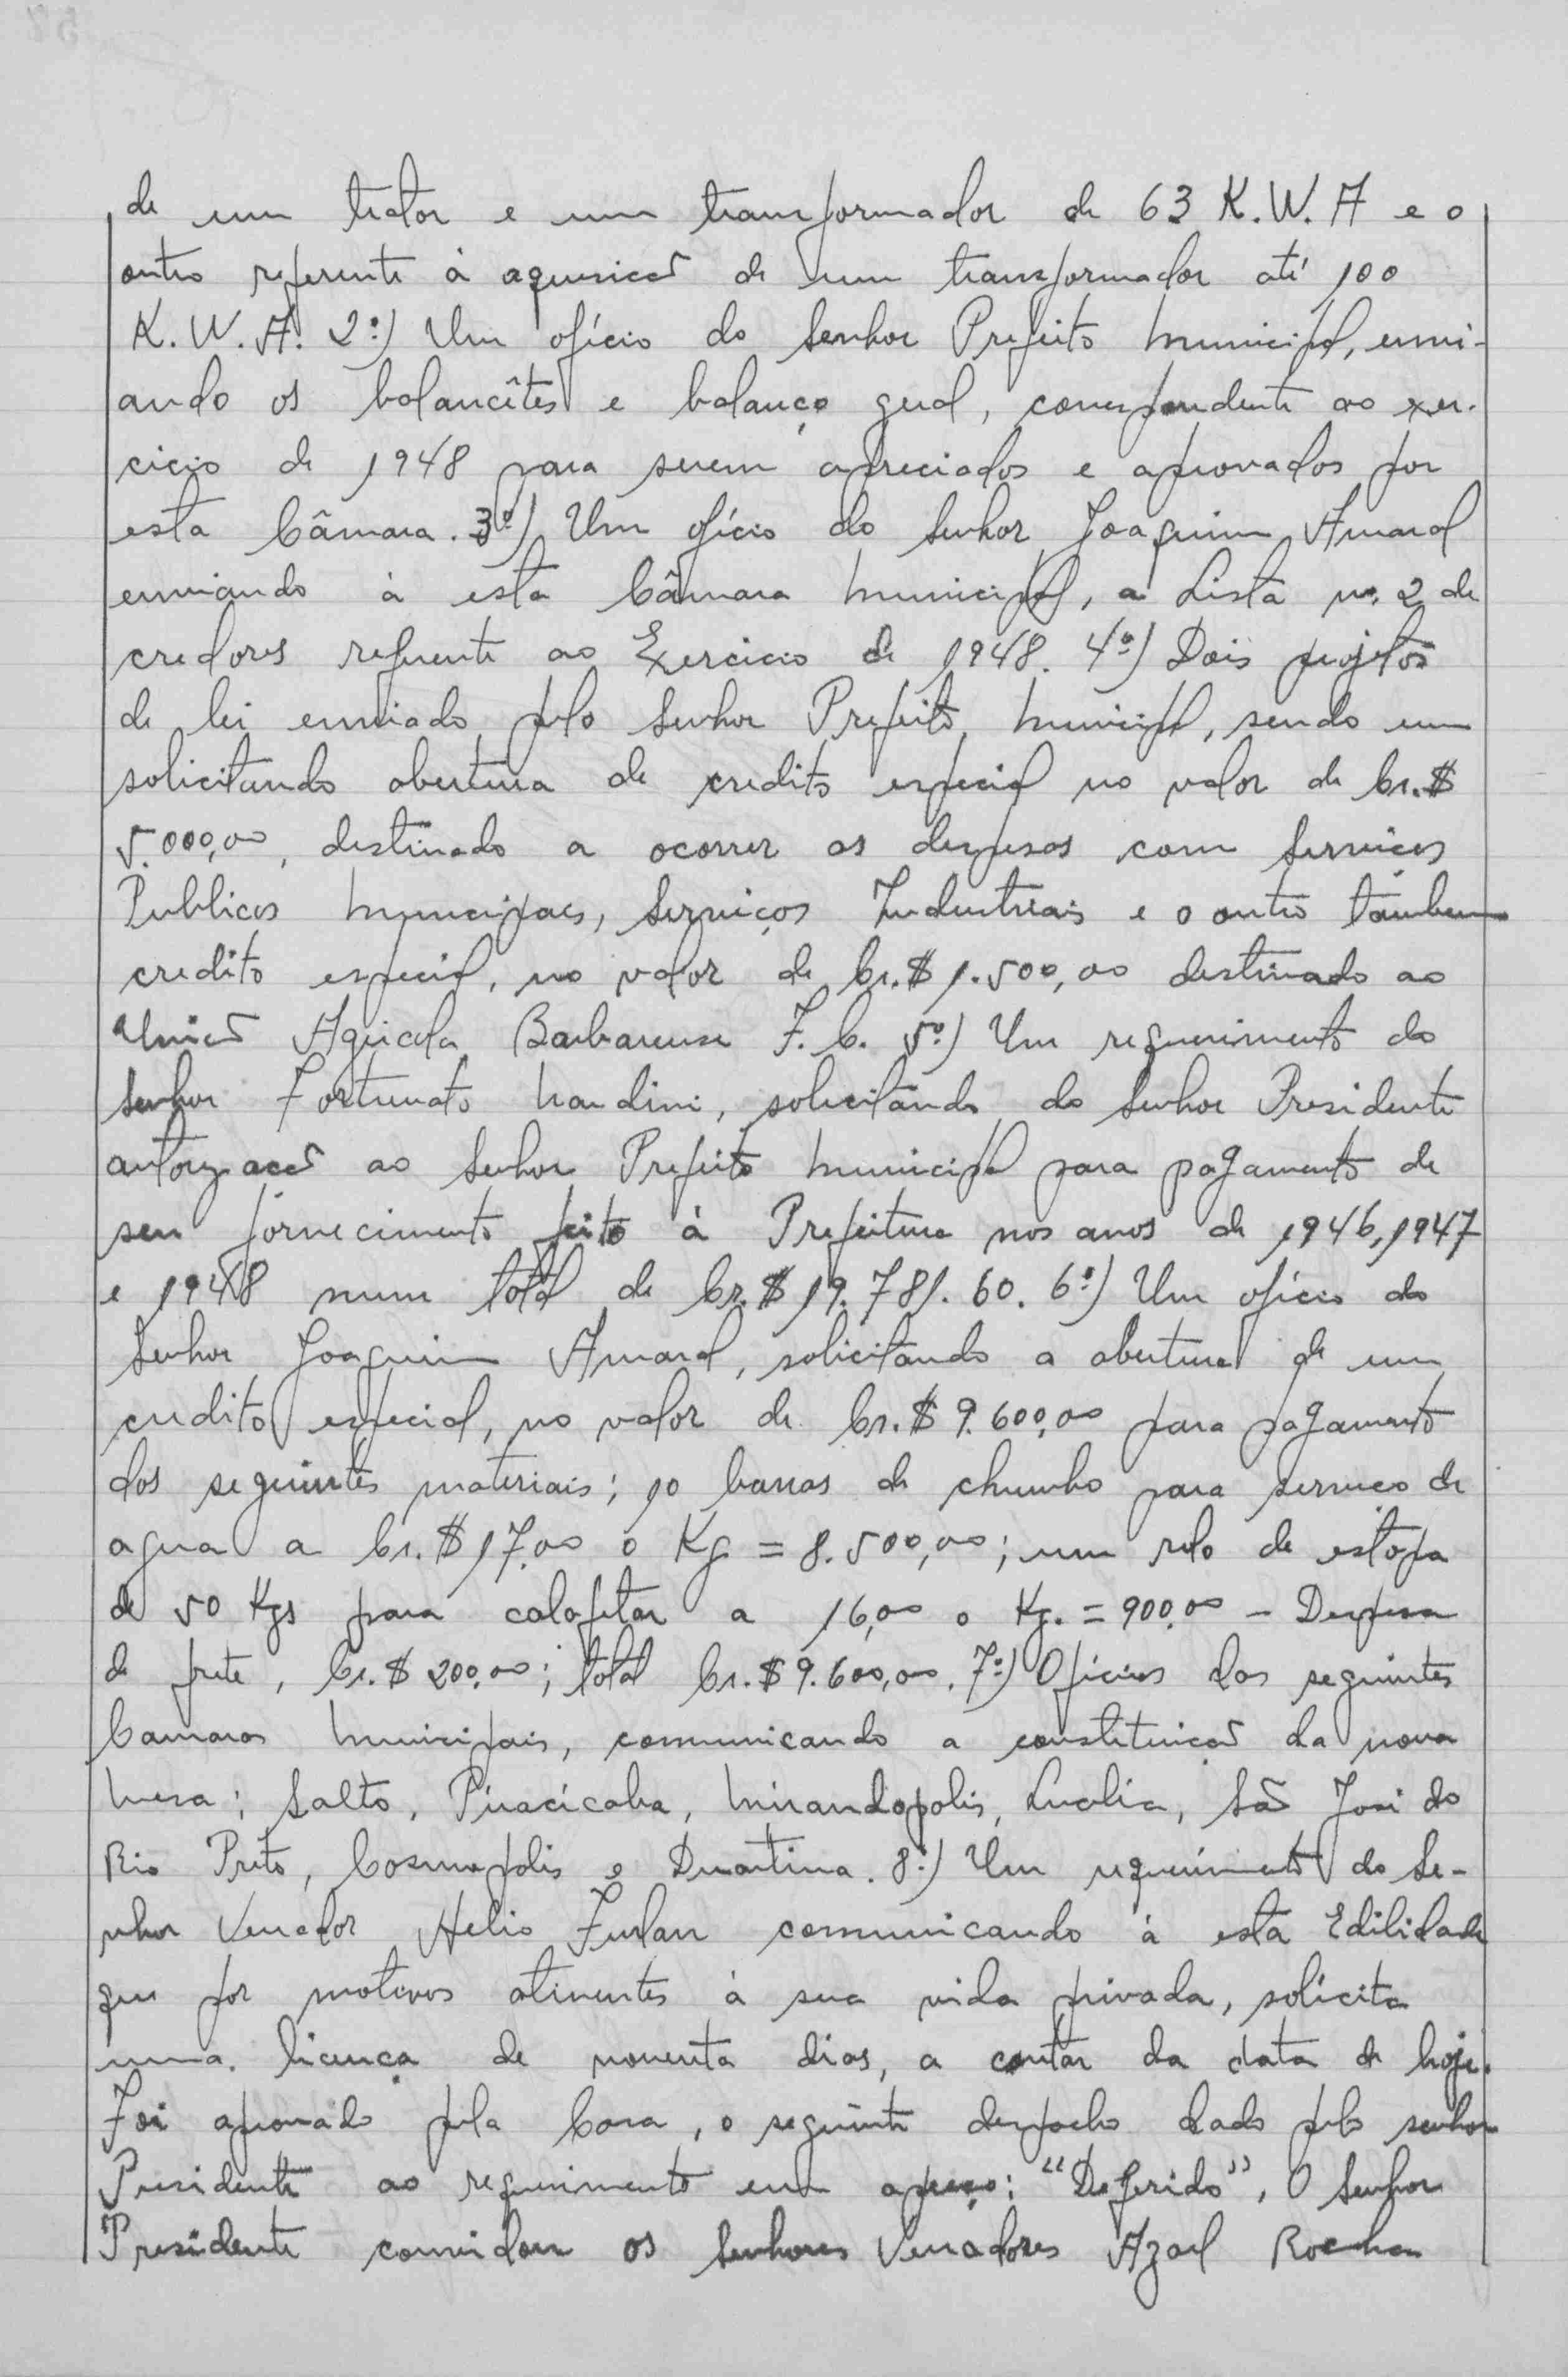 de um trator e um transformador de 63 K.W.A e o
outro referente à aquisicaõ de um transformador até 100
K.W.A. 2º) Um ofício do Senhor Prefeito Municipal, envi-
ando os balancêtes e balanço geral, correspondente ao exer-
cicio de 1948 para serem apreciados e aprovados por
esta Câmara. 3º) Um ofício do Senhor Joaquim Amaral
enviando à esta Câmara Municipal, a Lista nº. 2 de
credores referente ao Exercicio de 1948. 4º) Dois projetos
de lei enviado pelo Senhor Prefeito Municipal, sendo um
solicitando abertura de credito especial no valor de Cr.$
5.000,00, destinado a ocorrer as despesas com Serviços
Publicos Municipaes, Serviços Industriais e o outro tambem
credito especial, no valor de Cr.$ 1.500,00 destinado ao
União Agricola Barbarense F.C. 5º) Um requerimento do
Senhor Fortunato Nardini, solicitando do Senhor Presidente
autorizacaõ ao Senhor Prefeito Municipal para pagamento de
seu fornecimento feito à Prefeitura nos anos de 1946, 1947
e 1948 num total de Cr.$ 19.781.60. 6º) Um ofício do
Senhor Joaquim Amaral, solicitando a abertura de um
credito especial, no valor de Cr.$ 9.600,00 para pagamento
dos seguintes materiais; 10 barras de chumbo para serviço de
agua a Cr.$ 17,00 o Kg = 8.500,00; um rolo de estopa
de 50 Kgs para calafetar a 16,00 o Kg. = 900,00 - Despesa
de frete, Cr.$ 200,00; total Cr.$ 9.600,00. 7º) Oficios das seguintes
Camaras Municipais, comunicando a constituicaõ da nova
Mesa; Salto, Piracicaba, Mirandopolis, Lucelia, Saõ José do
Rio Prêto, Cosmopolis e Duartina. 8º) Um requerimento do Se-
nhor Vereador Helio Furlan comunicando à esta Edilidade
que por motivos atinentes à sua vida privada, solicita
uma licença de noventa dias, a contar da data de hoje.
Foi aprovado pela Casa, o seguinte despacho dado pelo senhor
Presidente ao requerimento em apreço: "Deferido", O Senhor
Presidente convidou os Senhores Vereadores Azael Rocha